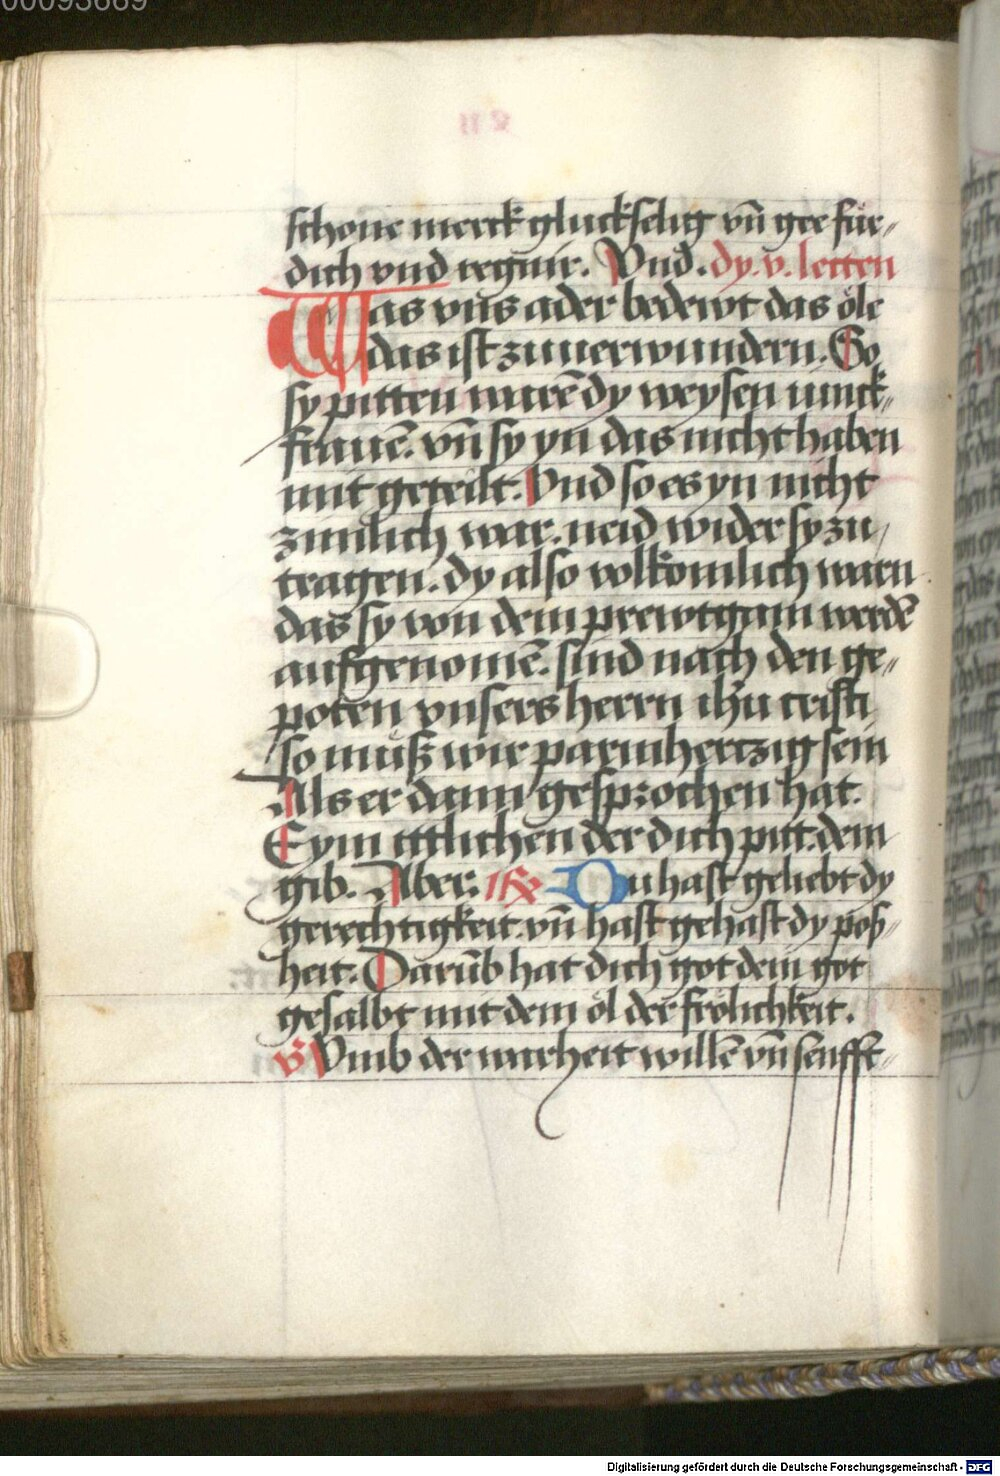 00093669
schone merck gluckselig vn̄ gee für„
dich vnd regnir. Vnd. dy. v. letten
Was vns ader bedewt das öle
das ist zuuerwundern. So
sy pitten warē dy weysen iunck„
frauē. vn̄ sy yn das nicht haben
mit geteilt. Vnd so es yn nicht
zimlich war. neid wider sy zu
tragen. dy also volkomlich warn
das sy von dem prewtgam werdē
aufgenomē. sind nach den ge„
poten vnsers herrn ihu cristi
so muß wir parmhertzig sein
Als er dann gesprochen hat.
Eym ittlichen der dich pitt. dem
gib. Aber. Du hast geliebt dy
gerechtigkeit. vn̄ hast gehast dy pos„
heit. Darūb hat dich got dein got
gesalbt mit dem öl der frölichkeit.
v̄ Vmb der warheit willē vn̄ senfft„
Digitalisierung gefördert durch die Deutsche Forschungsgemeinschaft - DFG